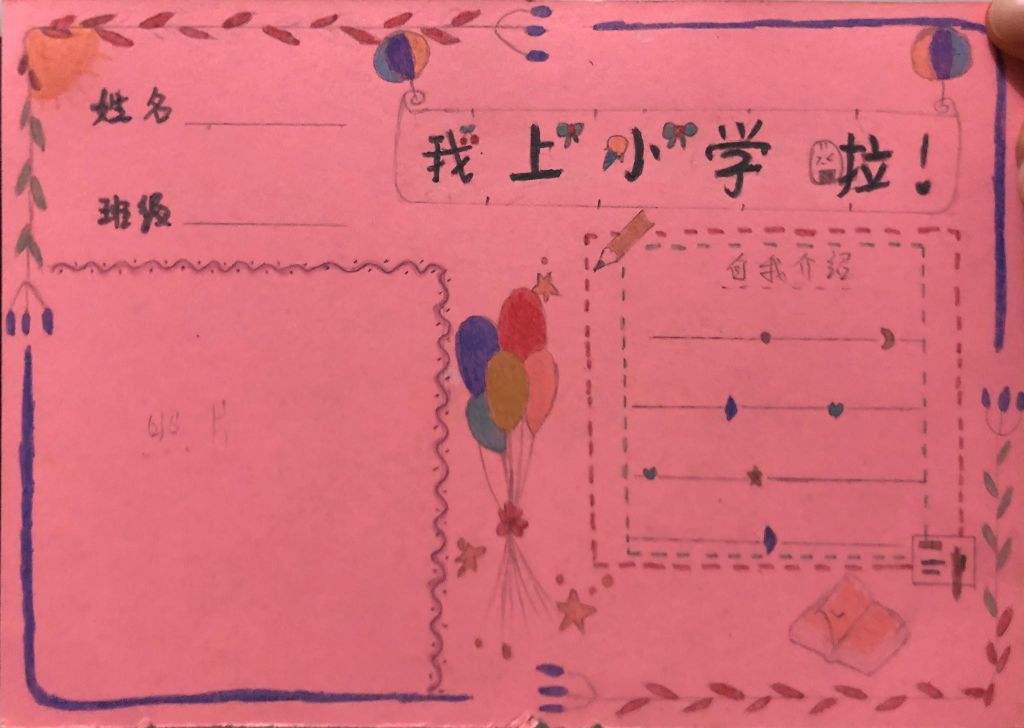 姓名
班级
我上小学啦！
自我介绍
照片